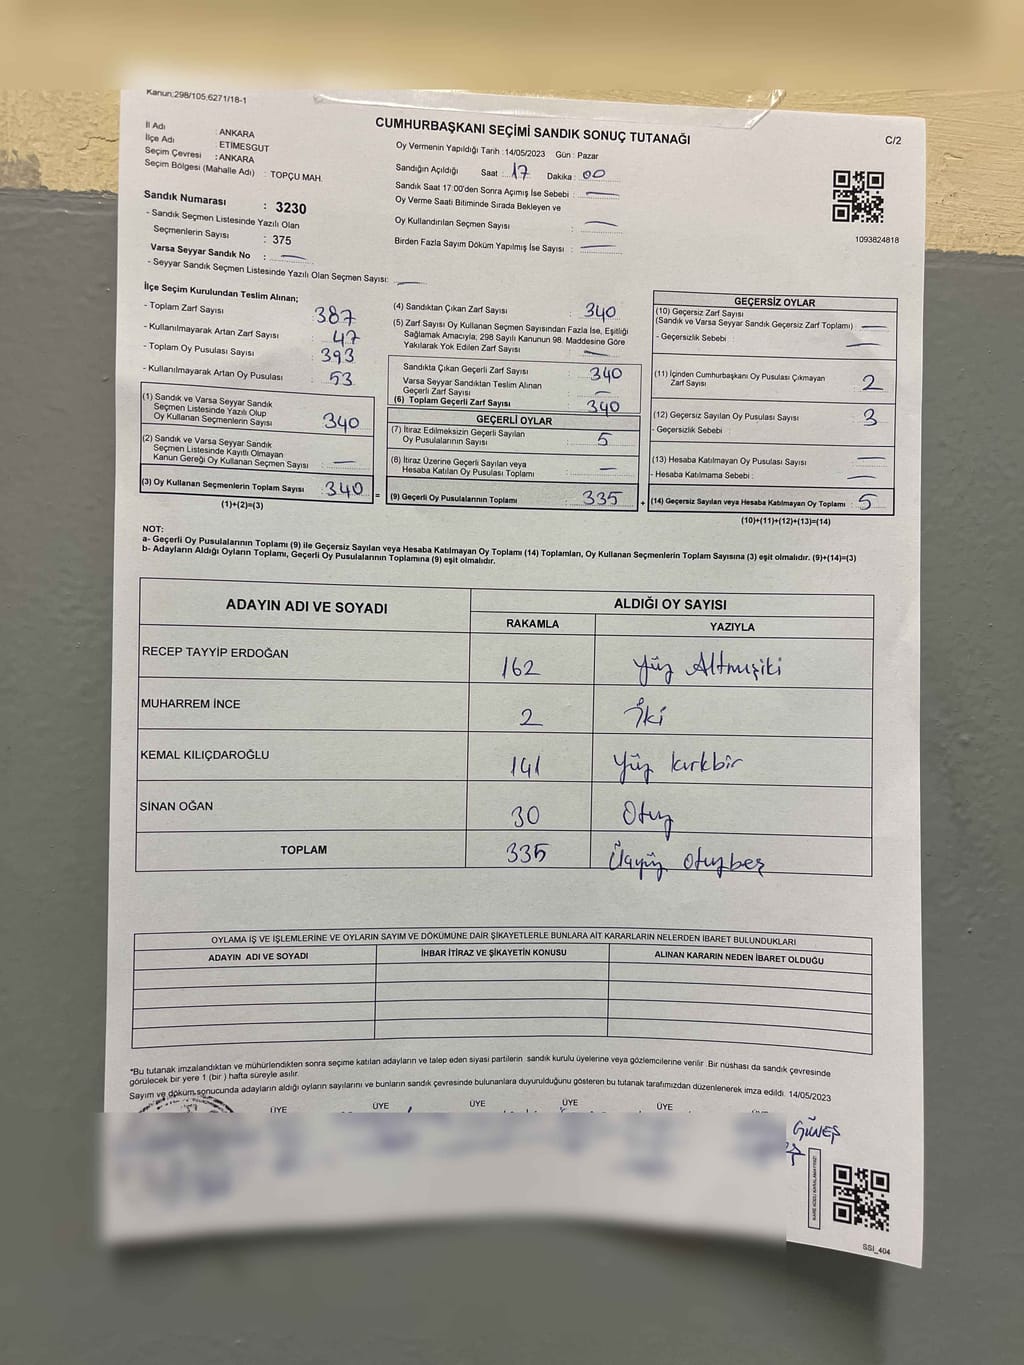 Kanun:298/105;6271/18-1
CUMHURBAŞKANI SEÇİMİ SANDIK SONUÇ TUTANAĞI
C/2
İl Adı : ANKARA
İlçe Adı : ETİMESGUT
Seçim Çevresi : ANKARA
Seçim Bölgesi (Mahalle Adı) : TOPÇU MAH.
Oy Vermenin Yapıldığı Tarih :14/05/2023 Gün : Pazar
Sandığın Açıldığı Saat : 17 Dakika : 00
Sandık Saat 17:00'den Sonra Açılmış İse Sebebi : —
Oy Verme Saati Bitiminde Sırada Bekleyen ve
Oy Kullandırılan Seçmen Sayısı : —
Birden Fazla Sayım Döküm Yapılmış İse Sayısı : —
1093824818
Sandık Numarası : 3230
- Sandık Seçmen Listesinde Yazılı Olan
Seçmenlerin Sayısı : 375
Varsa Seyyar Sandık No : —
- Seyyar Sandık Seçmen Listesinde Yazılı Olan Seçmen Sayısı: —
İlçe Seçim Kurulundan Teslim Alınan;
- Toplam Zarf Sayısı : 387
- Kullanılmayarak Artan Zarf Sayısı : 47
- Toplam Oy Pusulası Sayısı : 393
- Kullanılmayarak Artan Oy Pusulası : 53
(1) Sandık ve Varsa Seyyar Sandık
Seçmen Listesinde Yazılı Olup
Oy Kullanan Seçmenlerin Sayısı : 340
(2) Sandık ve Varsa Seyyar Sandık
Seçmen Listesinde Kayıtlı Olmayan
Kanun Gereği Oy Kullanan Seçmen Sayısı : —
(3) Oy Kullanan Seçmenlerin Toplam Sayısı : 340
(1)+(2)=(3)
(4) Sandıktan Çıkan Zarf Sayısı : 340
(5) Zarf Sayısı Oy Kullanan Seçmen Sayısından Fazla İse, Eşitliği
Sağlamak Amacıyla; 298 Sayılı Kanunun 98. Maddesine Göre
Yakılarak Yok Edilen Zarf Sayısı : —
Sandıkta Çıkan Geçerli Zarf Sayısı : 340
Varsa Seyyar Sandıktan Teslim Alınan
Geçerli Zarf Sayısı : —
(6) Toplam Geçerli Zarf Sayısı : 340
GEÇERLİ OYLAR
(7) İtiraz Edilmeksizin Geçerli Sayılan
Oy Pusulalarının Sayısı : 5
(8) İtiraz Üzerine Geçerli Sayılan veya
Hesaba Katılan Oy Pusulası Toplamı : —
= (9) Geçerli Oy Pusulalarının Toplamı : 335
GEÇERSİZ OYLAR
(10) Geçersiz Zarf Sayısı
(Sandık ve Varsa Seyyar Sandık Geçersiz Zarf Toplamı) : —
- Geçersizlik Sebebi : —
(11) İçinden Cumhurbaşkanı Oy Pusulası Çıkmayan
Zarf Sayısı : 2
(12) Geçersiz Sayılan Oy Pusulası Sayısı : 3
- Geçersizlik Sebebi :
(13) Hesaba Katılmayan Oy Pusulası Sayısı : —
- Hesaba Katılmama Sebebi : —
+ (14) Geçersiz Sayılan veya Hesaba Katılmayan Oy Toplamı : 5
(10)+(11)+(12)+(13)=(14)
NOT:
a- Geçerli Oy Pusulalarının Toplamı (9) ile Geçersiz Sayılan veya Hesaba Katılmayan Oy Toplamı (14) Toplamları, Oy Kullanan Seçmenlerin Toplam Sayısına (3) eşit olmalıdır. (9)+(14)=(3)
b- Adayların Aldığı Oyların Toplamı, Geçerli Oy Pusulalarının Toplamına (9) eşit olmalıdır.
ADAYIN ADI VE SOYADI ALDIĞI OY SAYISI
RAKAMLA YAZIYLA
RECEP TAYYİP ERDOĞAN 162 Yüz Altmışiki
MUHARREM İNCE 2 İki
KEMAL KILIÇDAROĞLU 141 Yüz kırkbir
SİNAN OĞAN 30 Otuz
TOPLAM 335 Üçyüz otuzbeş
OYLAMA İŞ VE İŞLEMLERİNE VE OYLARIN SAYIM VE DÖKÜMÜNE DAİR ŞİKAYETLERLE BUNLARA AİT KARARLARIN NELERDEN İBARET BULUNDUKLARI
ADAYIN ADI VE SOYADI İHBAR İTİRAZ VE ŞİKAYETİN KONUSU ALINAN KARARIN NEDEN İBARET OLDUĞU
*Bu tutanak imzalandıktan ve mühürlendikten sonra seçime katılan adayların ve talep eden siyasi partilerin sandık kurulu üyelerine veya gözlemcilerine verilir .Bir nüshası da sandık çevresinde
görülecek bir yere 1 (bir ) hafta süreyle asılır.
Sayım ve döküm sonucunda adayların aldığı oyların sayılarını ve bunların sandık çevresinde bulunanlara duyurulduğunu gösteren bu tutanak tarafımızdan düzenlenerek imza edildi. 14/05/2023
ÜYE ÜYE ÜYE ÜYE ÜYE
GÜNEŞ
SSI_404